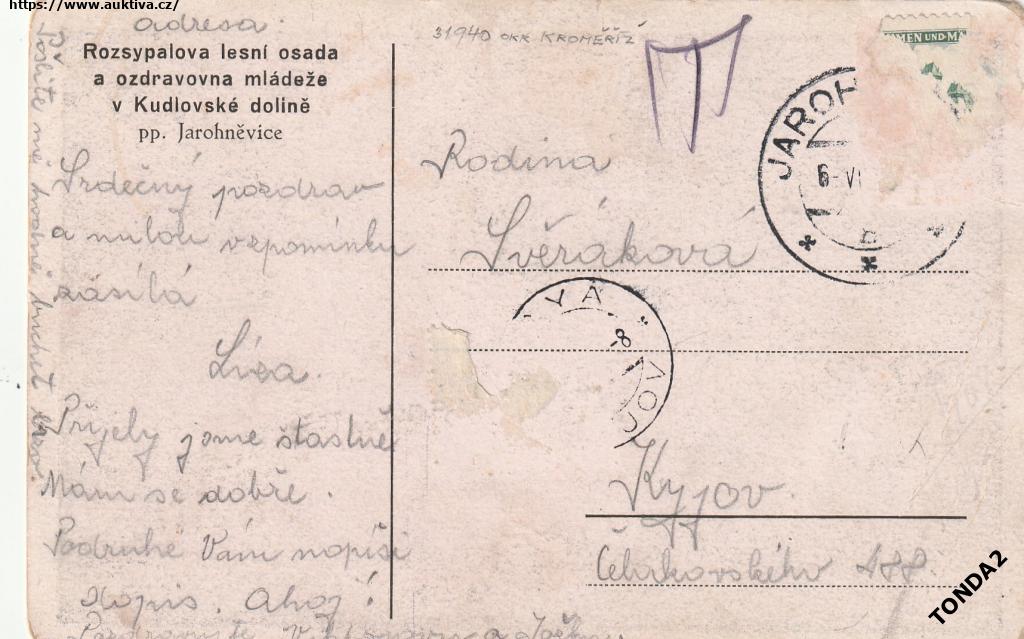 https://www.auktiva.cz/
adresa:
Rozsypalova lesní osada
a ozdravovna mládeže
v Kudlovské dolině
pp. Jarohněvice
Srdečný pozdrav
a milou vzpomínku
zásílá
Líza.
Přijely jsme šťastně
Mám se dobře.
Podruhé Vám nopíši
dopis. Ahoj!
Pozdravujte
Pošlete mě hodně buchet
31940 OKR KROMĚŘÍŽ
MEN UND M
JAROH
6-VI
B
Rodina
Svěráková
YVA
-8
JOV
Kyjov.
488
TONDA2